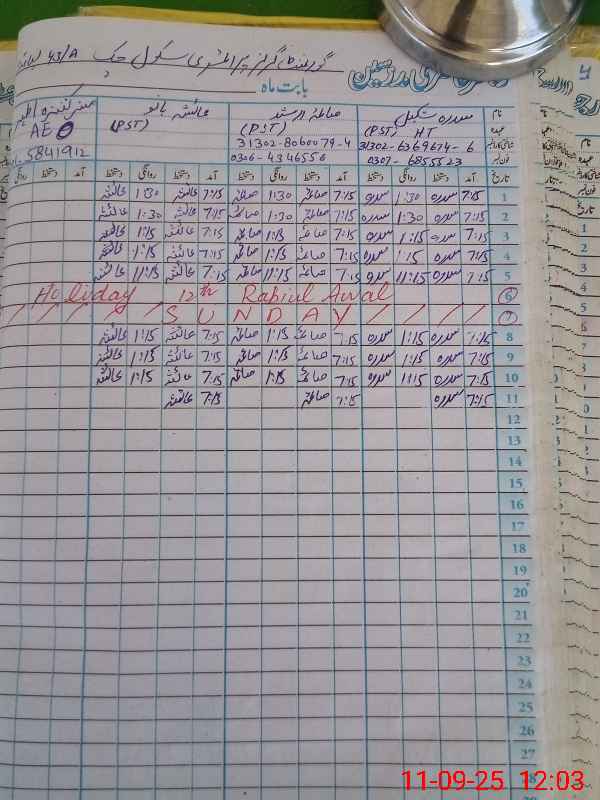 گورنمنٹ گرلز پرائمری سکول چک 43/A
بابت ماہ
نام سدرہ شکیل صائمہ ارشد عائشہ بانو
عہدہ (PST) HT (PST) (PST) AEO
31302-6369674-6 31302-8060079-4
0307-6855523 0306-4346556 5841912
تاریخ آمد دستخط روانگی دستخط آمد دستخط روانگی دستخط آمد دستخط روانگی دستخط آمد دستخط روانگی
1 7:15 سدرہ 1:30 سدرہ 7:15 صائمہ 1:30 صائمہ 7:15 عائشہ 1:30 عائشہ
2 7:15 سدرہ 1:30 سدرہ 7:15 صائمہ 1:30 صائمہ 7:15 عائشہ 1:30 عائشہ
3 7:15 سدرہ 1:15 سدرہ 7:15 صائمہ 1:15 صائمہ 7:15 عائشہ 1:15 عائشہ
4 7:15 سدرہ 1:15 سدرہ 7:15 صائمہ 1:15 صائمہ 7:15 عائشہ 1:15 عائشہ
5 7:15 سدرہ 11:15 سدرہ 7:15 صائمہ 11:15 صائمہ 7:15 عائشہ 11:15 عائشہ
Holiday 12th Rabiul Awal 6
SUNDAY 7
8 7:15 سدرہ 1:15 سدرہ 7:15 صائمہ 1:15 صائمہ 7:15 عائشہ 1:15 عائشہ
9 7:15 سدرہ 1:15 سدرہ 7:15 صائمہ 1:15 صائمہ 7:15 عائشہ 1:15 عائشہ
10 7:15 سدرہ 1:15 سدرہ 7:15 صائمہ 1:15 صائمہ 7:15 عائشہ 1:15 عائشہ
11 7:15 سدرہ 7:15 صائمہ 7:15 عائشہ
12
13
14
15
16
17
18
19
20
21
22
23
24
25
26
27
28
11-09-25 12:03